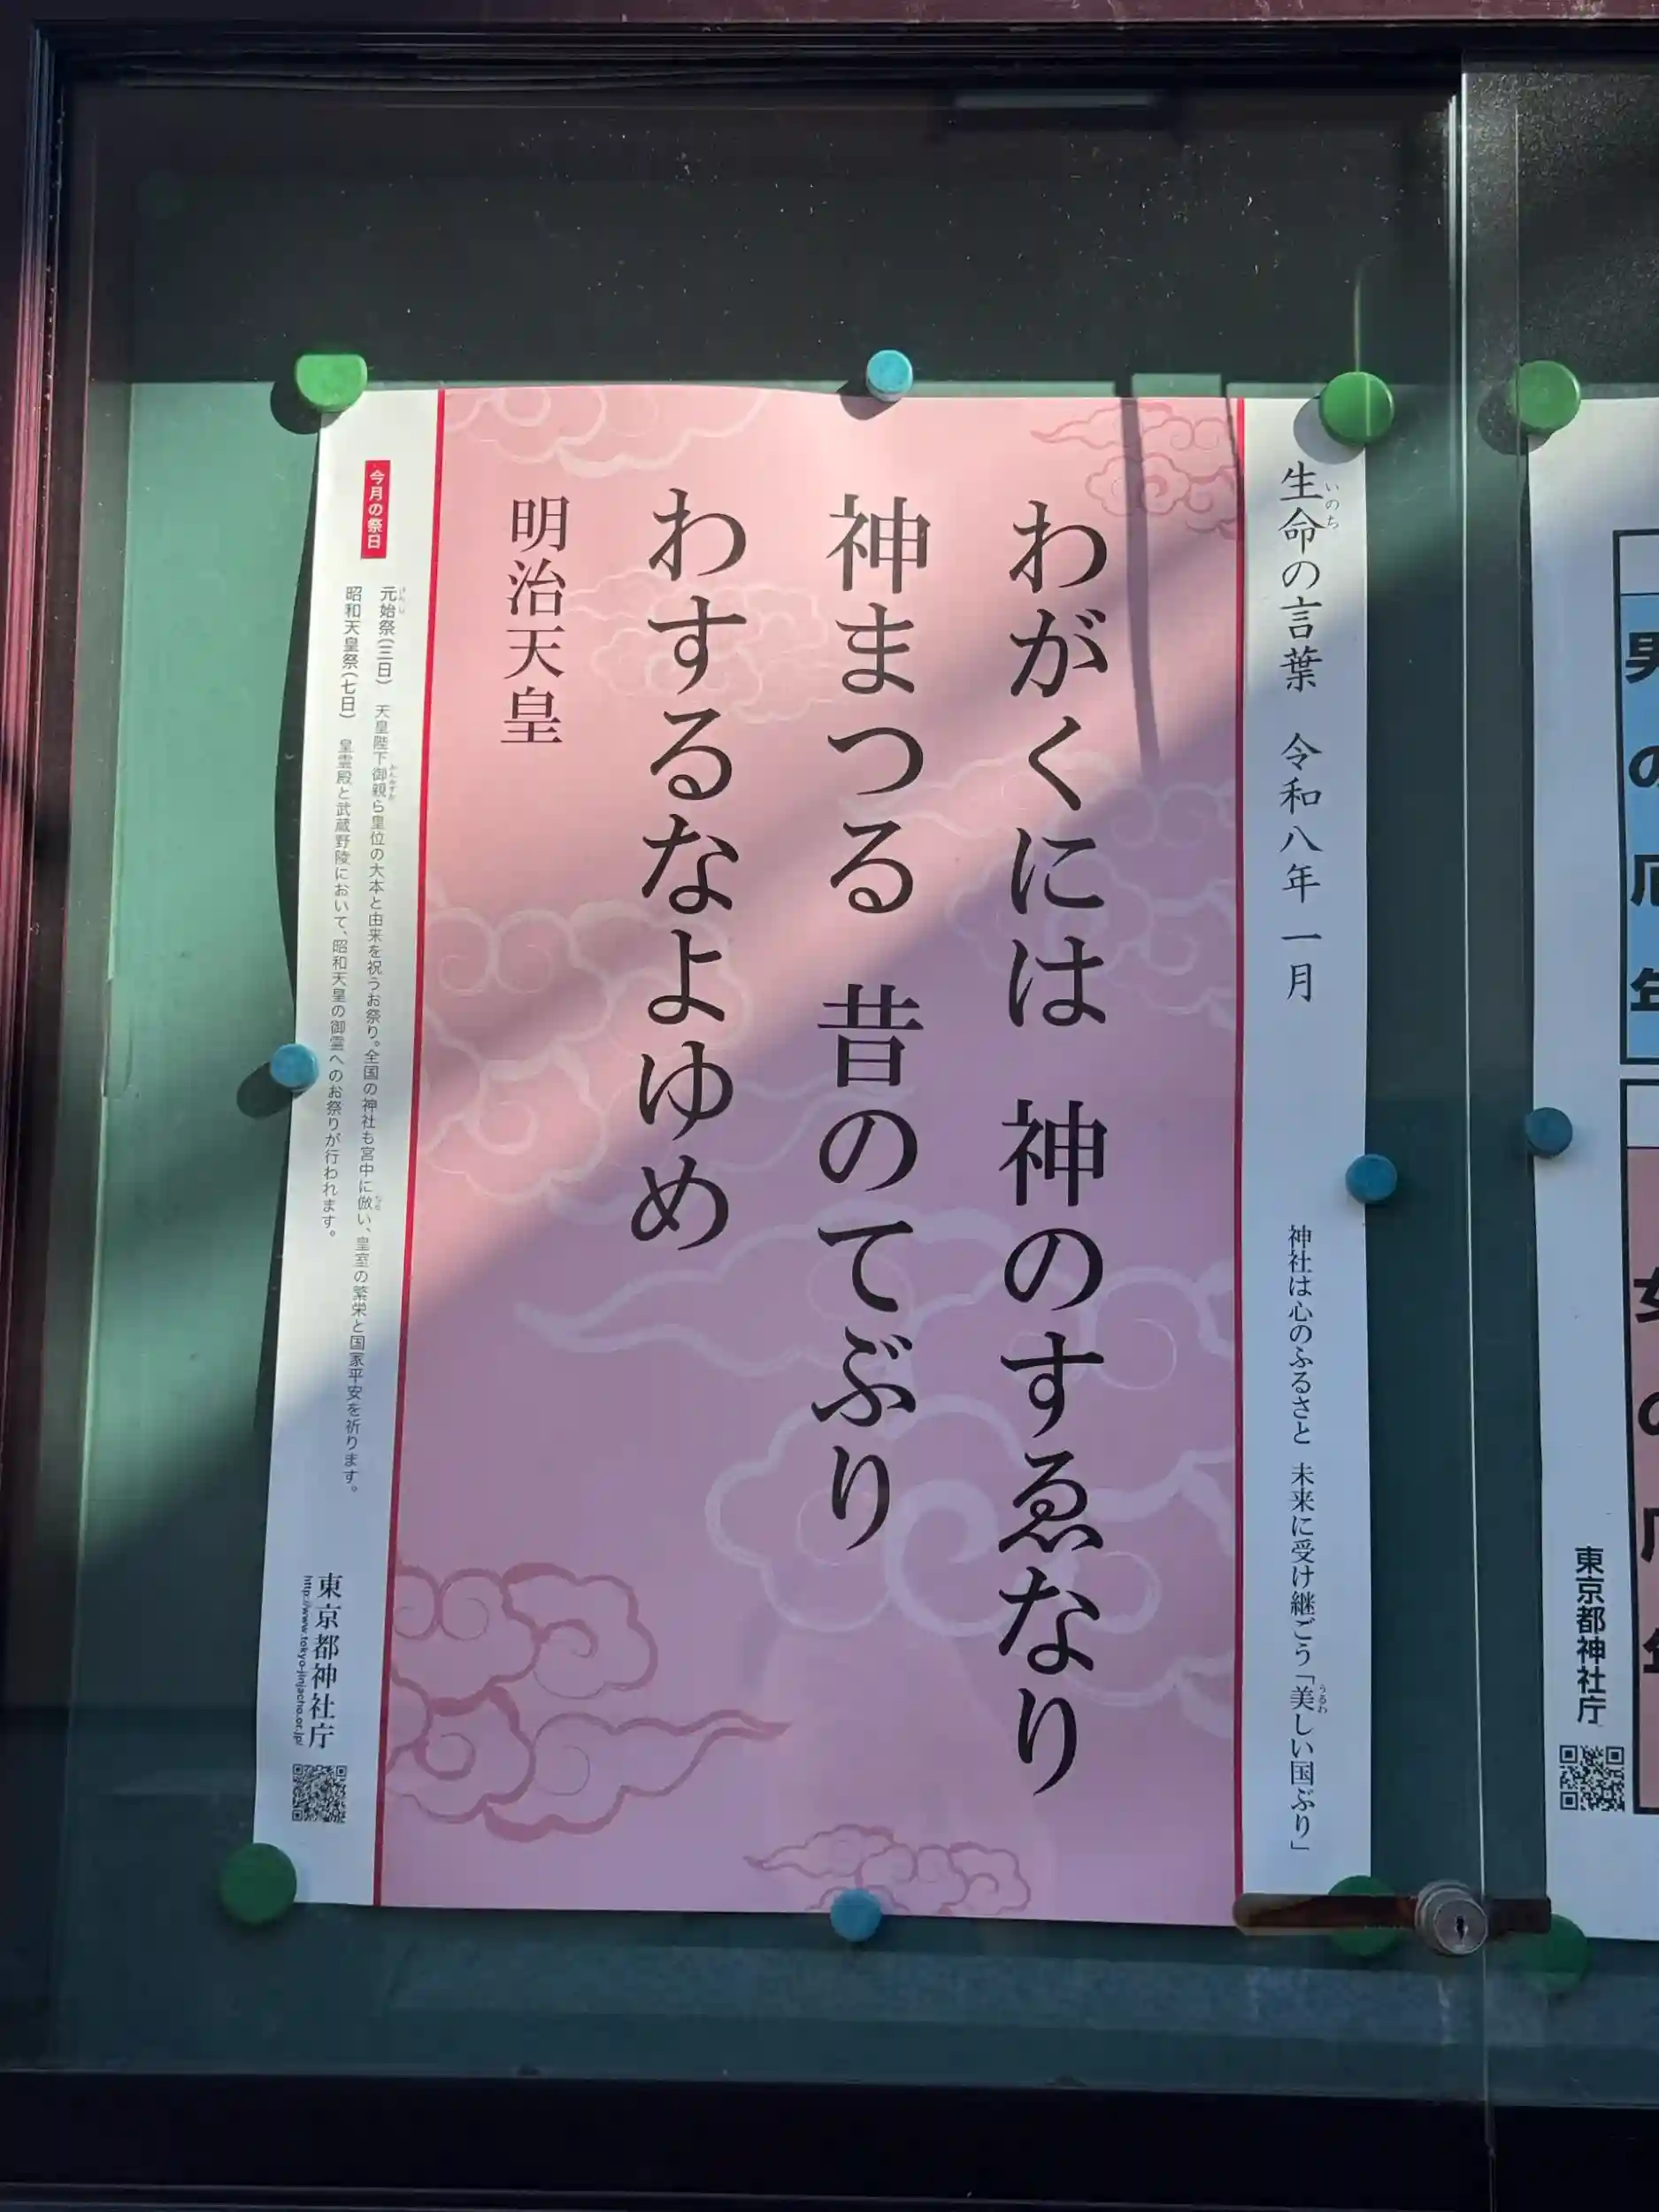 生命の言葉　令和八年　一月
いのち
神社は心のふるさと　未来に受け継ごう「美しい国ぶり」
うるわ
わがくには　神のすゑなり
神まつる　昔のてぶり
わするなよゆめ
明治天皇
今月の祭日
元始祭(三日)　天皇陛下御親ら皇位の大本と由来を祝うお祭り。全国の神社も宮中に倣い、皇室の繁栄と国家平安を祈ります。
昭和天皇祭(七日)　皇霊殿と武蔵野陵において、昭和天皇の御霊へのお祭りが行われます。
東京都神社庁
http://www.tokyo-jinjacho.or.jp/
男の厄年
東京都神社庁